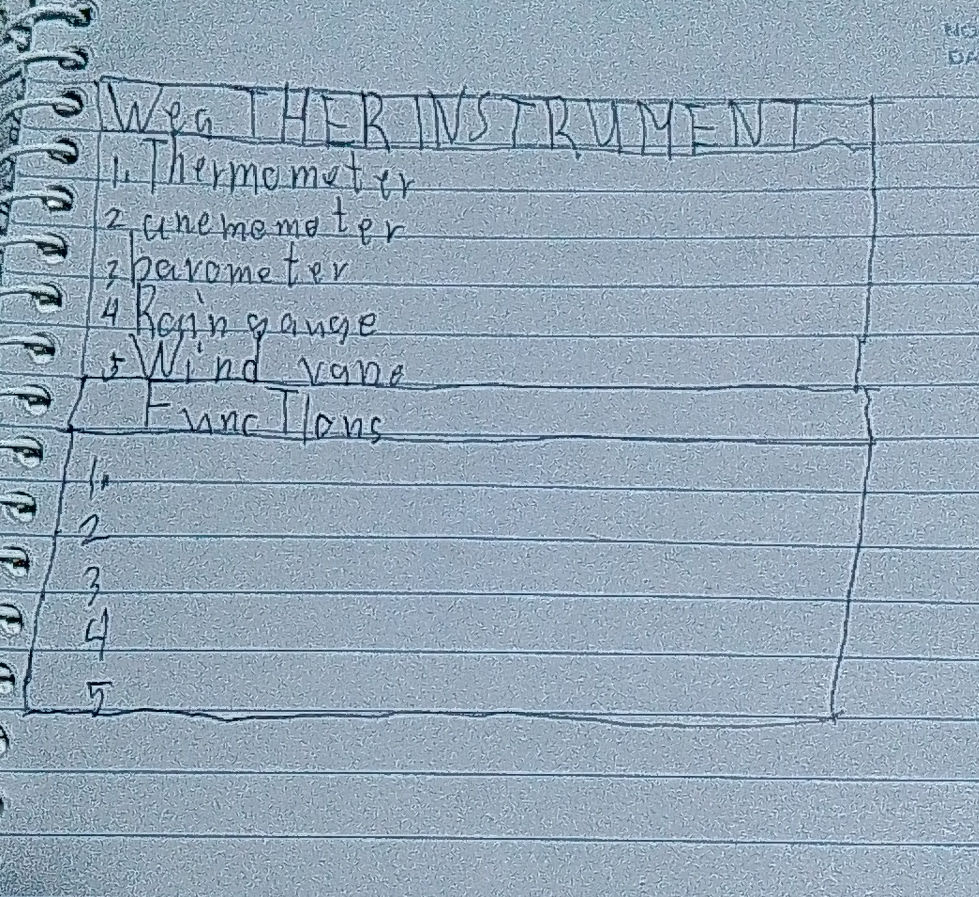 NO
DA
Wea THER INSTRUMENT
1. Thermometer
2. anemometer
3 barometer
4 Rain gauge
5 Wind vane
FuncTIons
1.
2
3
4
5